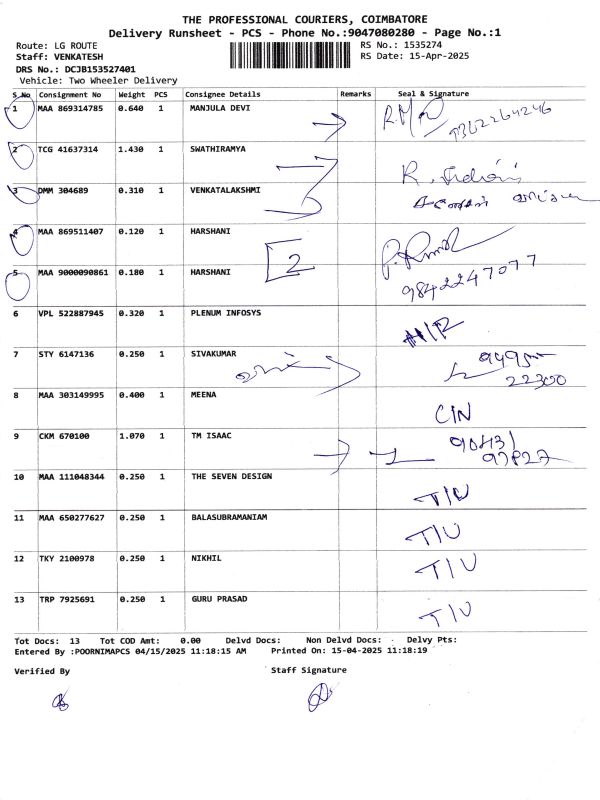 THE PROFESSIONAL COURIERS, COIMBATORE
Delivery Runsheet - PCS - Phone No.:9047080280 - Page No.:1
Route: LG ROUTE RS No.: 1535274
Staff: VENKATESH RS Date: 15-Apr-2025
DRS No.: DCJB153527401
Vehicle: Two Wheeler Delivery
S No Consignment No Weight PCS Consignee Details Remarks Seal & Signature
1 MAA 869314785 0.640 1 MANJULA DEVI
2 TCG 41637314 1.430 1 SWATHIRAMYA
3 DMM 304689 0.310 1 VENKATALAKSHMI
4 MAA 869511407 0.120 1 HARSHANI
5 MAA 9000090861 0.180 1 HARSHANI 2 9842247077
6 VPL 522887945 0.320 1 PLENUM INFOSYS
7 STY 6147136 0.250 1 SIVAKUMAR 22300
8 MAA 303149995 0.400 1 MEENA C/N
9 CKM 670100 1.070 1 TM ISAAC 90431 97827
10 MAA 111048344 0.250 1 THE SEVEN DESIGN T/U
11 MAA 650277627 0.250 1 BALASUBRAMANIAM T/U
12 TKY 2100978 0.250 1 NIKHIL T/U
13 TRP 7925691 0.250 1 GURU PRASAD T/U
Tot Docs: 13 Tot COD Amt: 0.00 Delvd Docs: Non Delvd Docs: Delvy Pts:
Entered By :POORNIMAPCS 04/15/2025 11:18:15 AM Printed On: 15-04-2025 11:18:19
Verified By Staff Signature